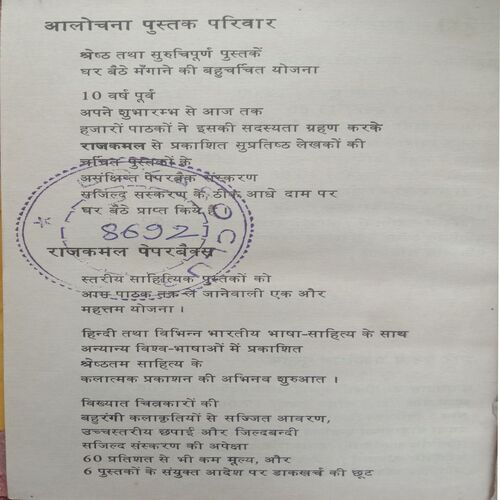 आलोचना पुस्तक परिवार
श्रेष्ठ तथा सुरुचिपूर्ण पुस्तकें
घर बैठे मँगाने की बहुचर्चित योजना
10 वर्ष पूर्व
अपने शुभारम्भ से आज तक
हजारों पाठकों ने इसकी सदस्यता ग्रहण करके
राजकमल से प्रकाशित सुप्रतिष्ठ लेखकों की
चर्चित पुस्तकों के
असंक्षिप्त पेपरबैक संस्करण
सजिल्द संस्करण के ठीक आधे दाम पर
घर बैठे प्राप्त किये हैं ।
8692
राजकमल पेपरबैक्स
स्तरीय साहित्यिक पुस्तकों को
आम पाठक तक ले जानेवाली एक और
महत्तम योजना ।
हिन्दी तथा विभिन्न भारतीय भाषा-साहित्य के साथ
अन्यान्य विश्व-भाषाओं में प्रकाशित
श्रेष्ठतम साहित्य के
कलात्मक प्रकाशन की अभिनव शुरुआत ।
विख्यात चित्रकारों की
बहुरंगी कलाकृतियों से सज्जित आवरण,
उच्चस्तरीय छपाई और जिल्दबन्दी
सजिल्द संस्करण की अपेक्षा
60 प्रतिशत से भी कम मूल्य, और
6 पुस्तकों के संयुक्त आदेश पर डाकखर्च की छूट